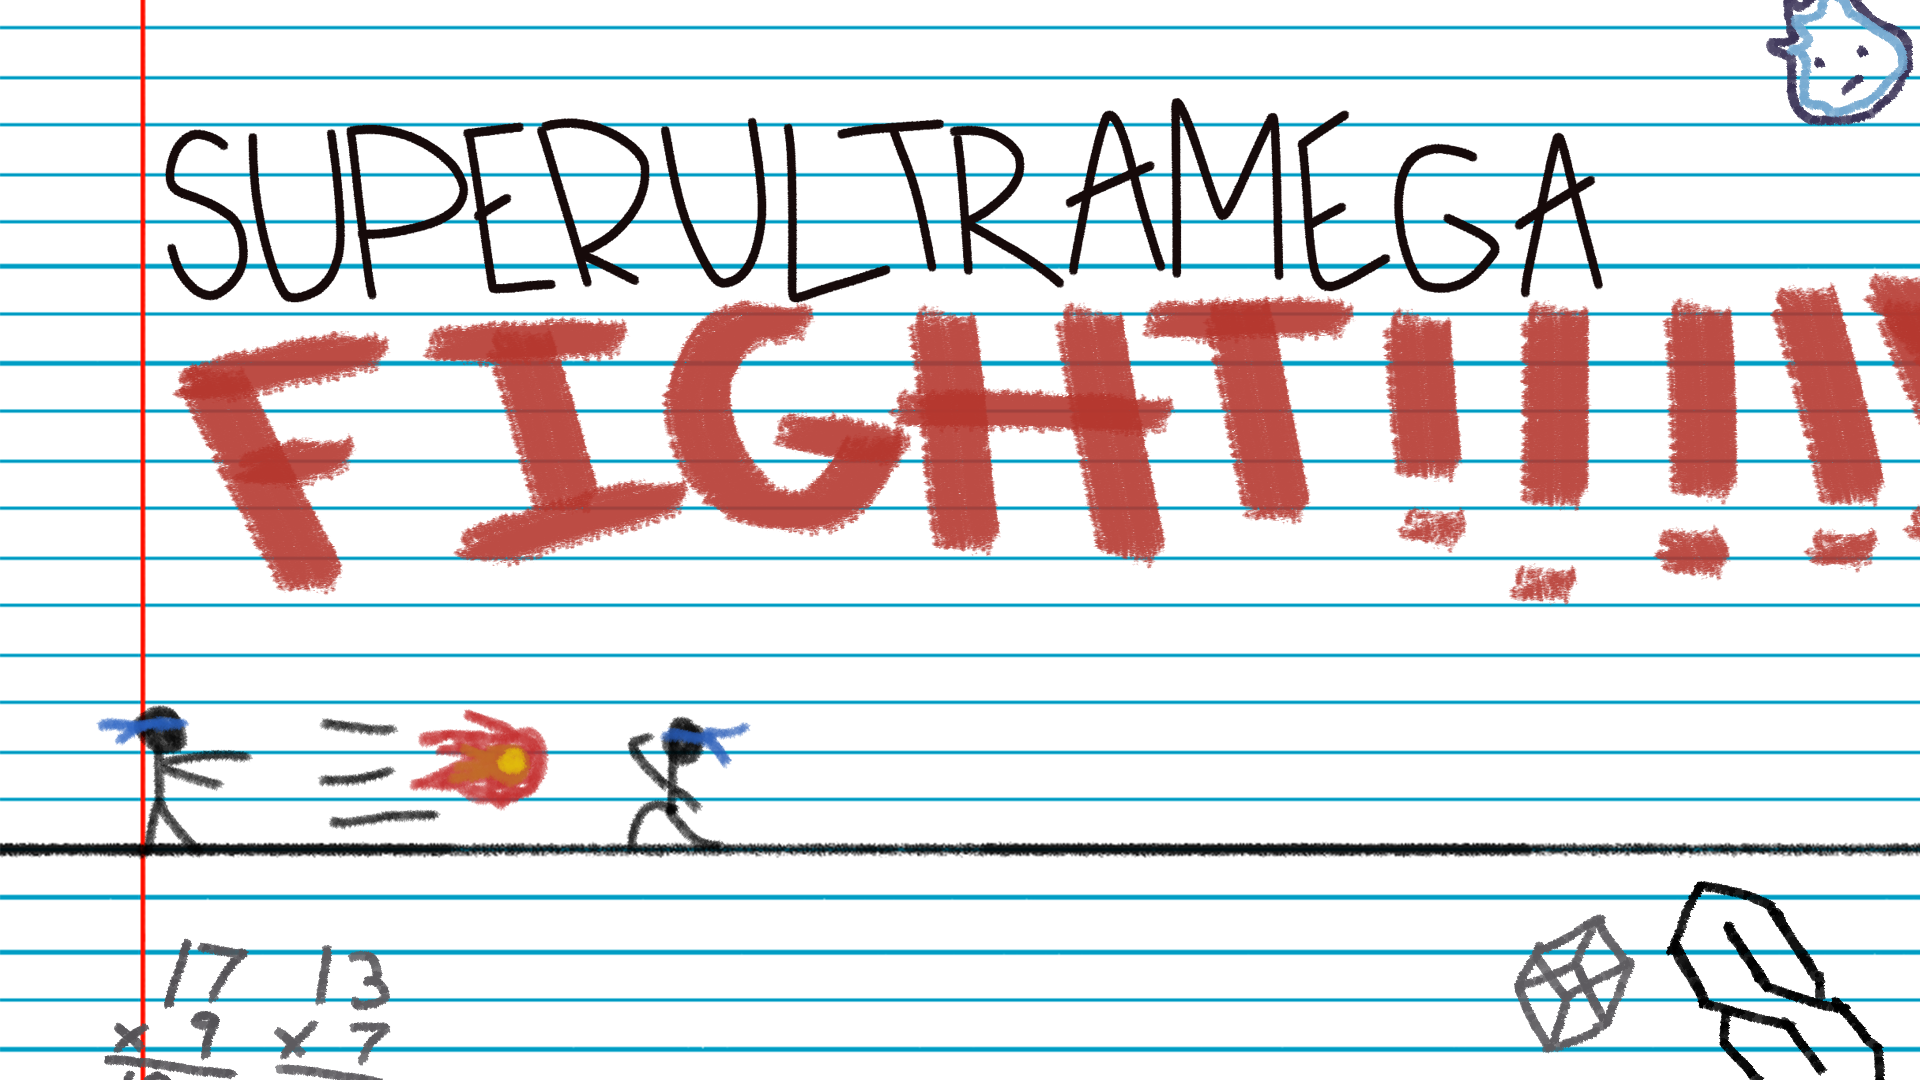 SUPERULTRAMEGA
FIGHT!!!!
17 13
x 9 x 7